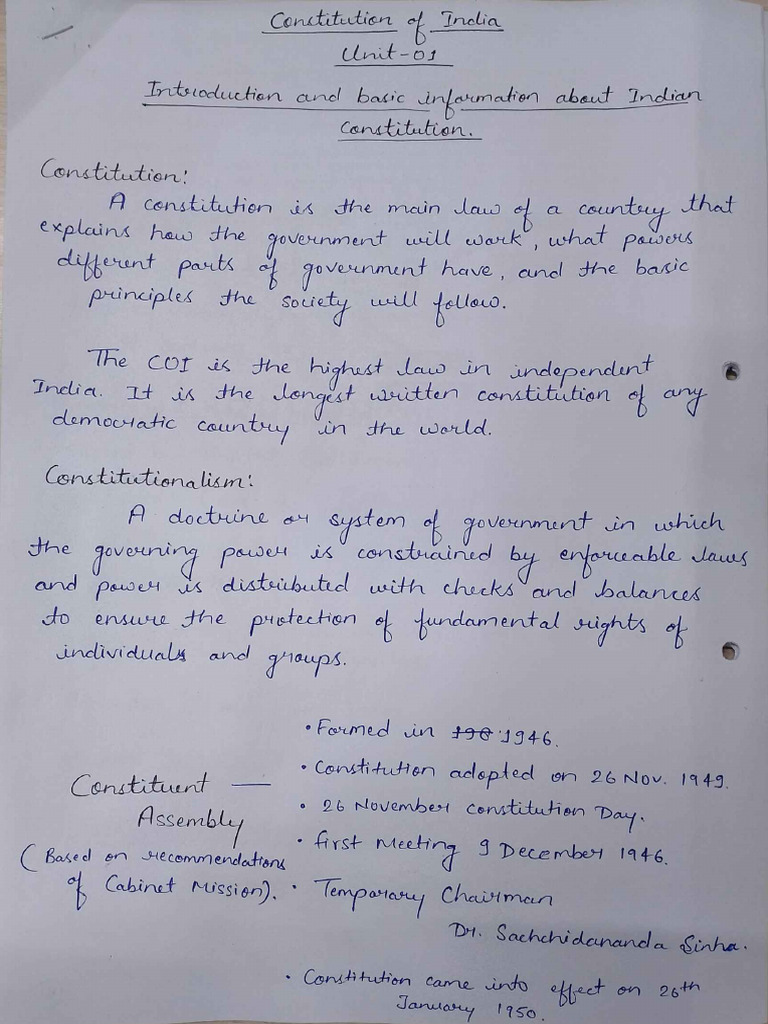 Constitution of India
Unit-01
Introduction and basic information about Indian
Constitution.
Constitution:
A constitution is the main law of a country that
explains how the government will work, what powers
different parts of government have, and the basic
principles the society will follow.
The COI is the highest law in independent
India. It is the longest written constitution of any
democratic country in the world.
Constitutionalism:
A doctrine or system of government in which
the governing power is constrained by enforceable laws
and power is distributed with checks and balances
to ensure the protection of fundamental rights of
individuals and groups.
Constituent —
Assembly
(Based on recommendations
of Cabinet Mission).
• Formed in 190 1946.
• Constitution adopted on 26 Nov. 1949.
• 26 November constitution Day.
• first Meeting 9 December 1946.
• Temporary Chairman
Dr. Sachchidananda Sinha.
• Constitution came into effect on 26th
January 1950.